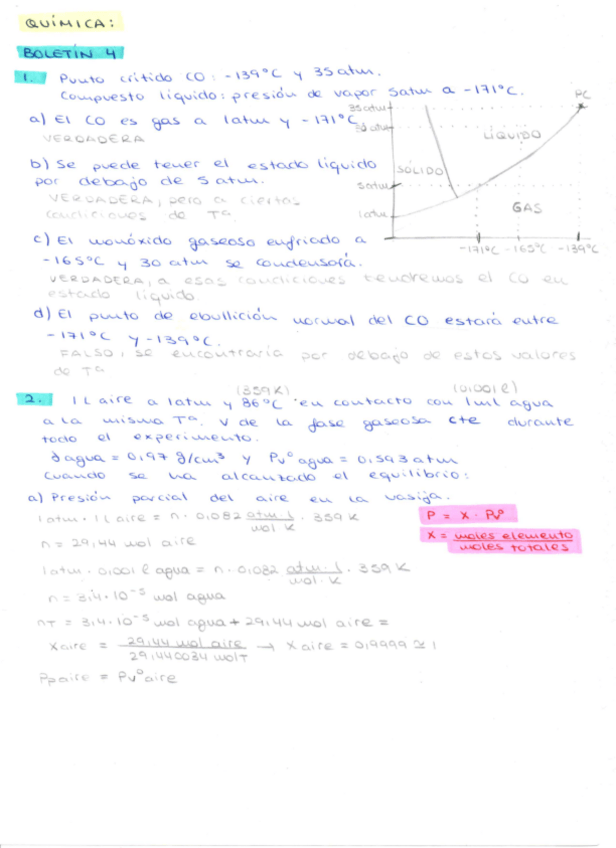 QUÍMICA:
BOLETÍN 4
1. Punto crítico CO: -139ºC y 35 atm.
Compuesto líquido: presión de vapor 5atm a -171ºC.
a) El CO es gas a 1atm y -171ºC
VERDADERA
b) Se puede tener el estado líquido
por debajo de 5 atm.
VERDADERA, pero a ciertas
condiciones de Tª.
c) El monóxido gaseoso enfriado a
-165ºC y 30 atm se condensará.
VERDADERA, a esas condiciones tendremos el CO en
estado líquido.
d) El punto de ebullición normal del CO estará entre
-171ºC y -139ºC.
FALSO, se encontraría por debajo de estos valores
de Tª
PC
35 atm
30 atm
LÍQUIDO
SÓLIDO
5atm
GAS
1atm
-171ºC -165ºC -139ºC
(359K) (0,001 l)
2. 1 L aire a 1atm y 86ºC en contacto con 1ml agua
a la misma Tª. V de la fase gaseosa cte durante
todo el experimento.
dagua = 0,97 g/cm³ y Pvº agua = 0,593 atm
Cuando se ha alcanzado el equilibrio:
a) Presión parcial del aire en la vasija.
1atm · 1L aire = n · 0,082 atm·l/mol·K · 359 K
n = 29,44 mol aire
1atm · 0,001 l agua = n · 0,082 atm·l/mol·K · 359 K
n = 3,4·10⁻⁵ mol agua
nT = 3,4·10⁻⁵ mol agua + 29,44 mol aire =
Xaire = 29,44 mol aire/29,440034 molT → Xaire = 0,9999 ≅ 1
Ppaire = Pvº aire
P = X · Pvº
X = moles elemento/moles totales